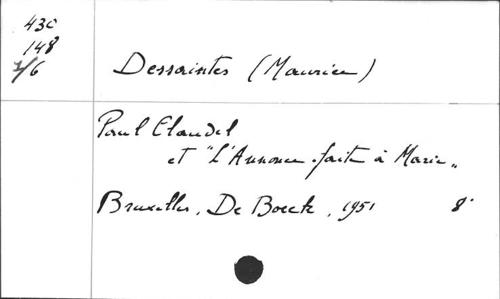 430
148
7/6
Dessaintes (Maurice)
Paul Claudel
et "L'Annonce faite à Marie"
Bruxelles, De Boeck, 1951 8°